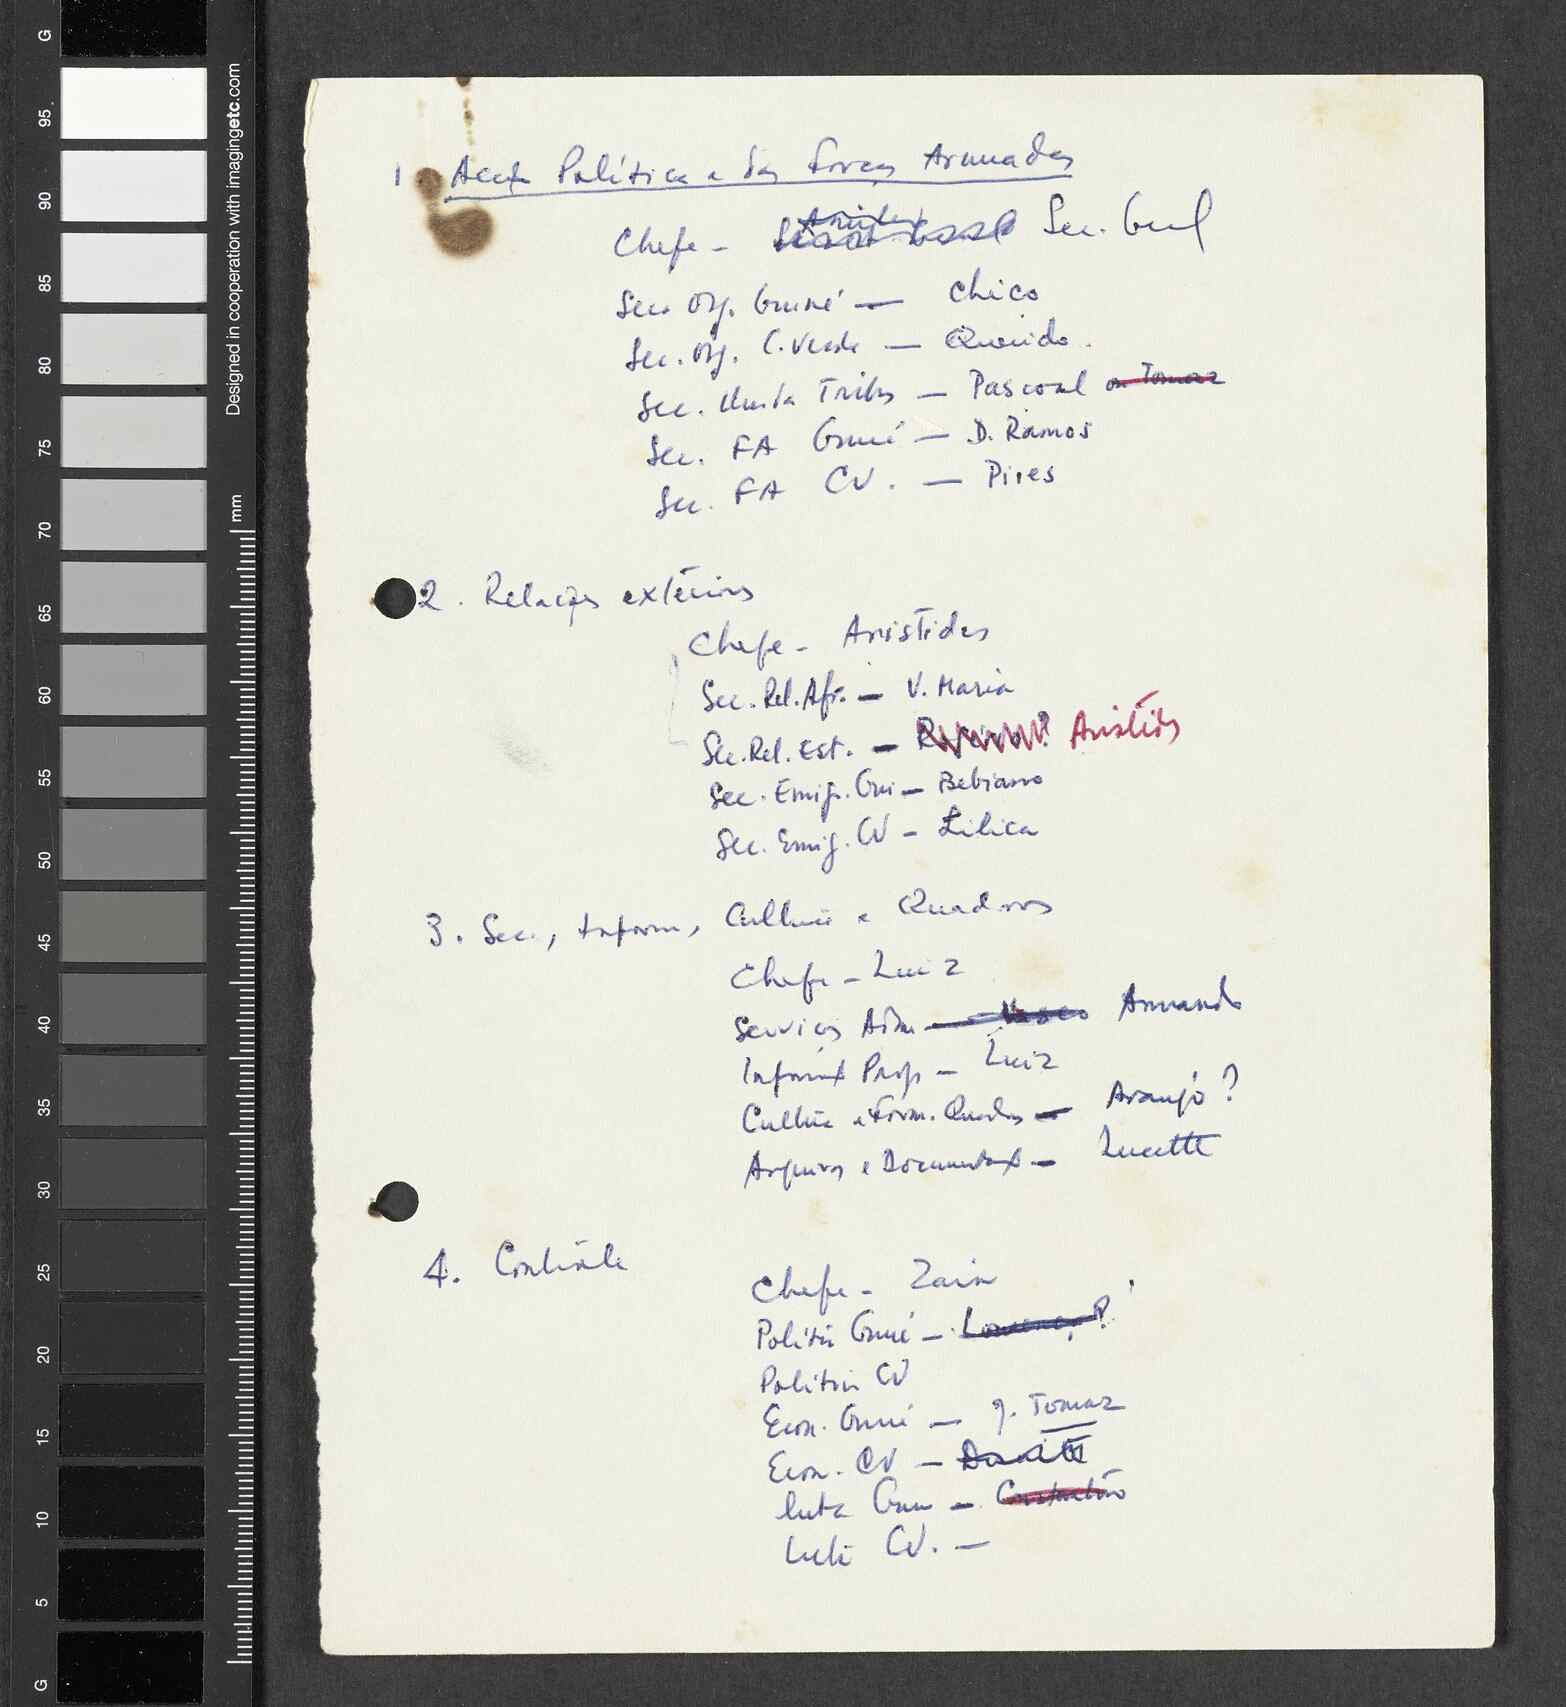 1 Acç Política e das Forças Armadas
Chefe - Sec. Geral
Sec. Org. Guiné — Chico
Sec. Org. C. Verde — Querido.
Sec. Tribs — Pascoal ou Tomaz
Sec. FA Guiné — D. Ramos
Sec. FA CV. — Pires
2. Relações extēriores
Chefe - Aristides
Sec. Rel. Afr. — V. Maria
Sec. Rel. Est. — Aristides
Sec. Emig. Gui — Bebiano
Sec. Emig. CV — Lilica
3. Sec., Inform, Cultura e Quadros
Chefe - Luiz
Serviços Adm — Vasco Armando
Inform Prop — Luiz
Cultura e Form. Quadros — Araujo?
Arquivos e Document — Lucette
4. Contrôle
Chefe - Zain
Política Guiné — Lourenço?
Política CV
Econ. Guiné — J. Tomaz
Econ. CV — Duarte
Luta Guin — Constantino
Luta CV. —
Designed in cooperation with imagingetc.com
mm
G
95
90
85
80
75
70
65
60
55
50
45
40
35
30
25
20
15
10
5
G